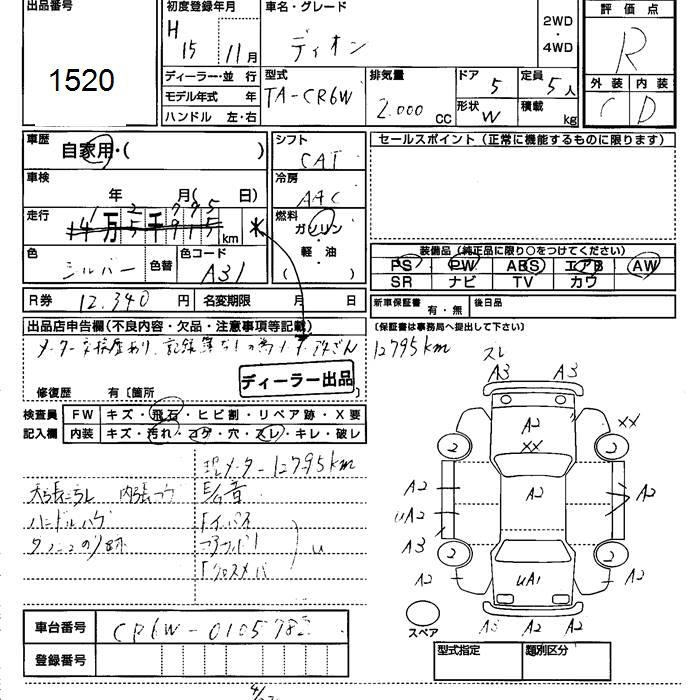 出品番号 初度登録年月 車名・グレード 評価点
1520
H 15 年 11 月 ディオン 2WD・4WD R
ディーラー・並行 型式 排気量 ドア 定員 外装 内装
モデル年式 年 TA-CR6W 2.000 CC 5 5人 C D
ハンドル 左・右 形状 W 積載 kg
車歴 自家用・( ) シフト CAT セールスポイント(正常に機能するものに限ります)
車検 年 月( 日) 冷房 AAC
走行 万 千 km * 燃料 ガソリン・軽・油 ( )
色 シルバー 色替 色コード A31
装備品(純正品に限り○をつけてください)
PS PW ABS エアB AW
SR ナビ TV カワ
R券 12.340 円 名変期限 月 日 新車保証書 有・無 後日品
出品店申告欄(不良内容・欠品・注意事項等記載) (保証書は事務局へ提出して下さい)
メーター交換歴あり、記録簿なしの為 12795km
修復歴 有〔箇所 ディーラー出品
検査員 FW キズ・飛石・ヒビ割・リペア跡・X要
記入欄 内装 キズ・汚れ・コゲ・穴・スレ・キレ・破レ
現メーター12795km
ハンドルハゲ
スレ
A3 A3
A2 XX XX
2 2
A2 A2 A2
uA2
A3
2 2
A2 uA1 A2
A3 A2 A2
スペア
車台番号 CR6W-0105782
登録番号
型式指定 類別区分